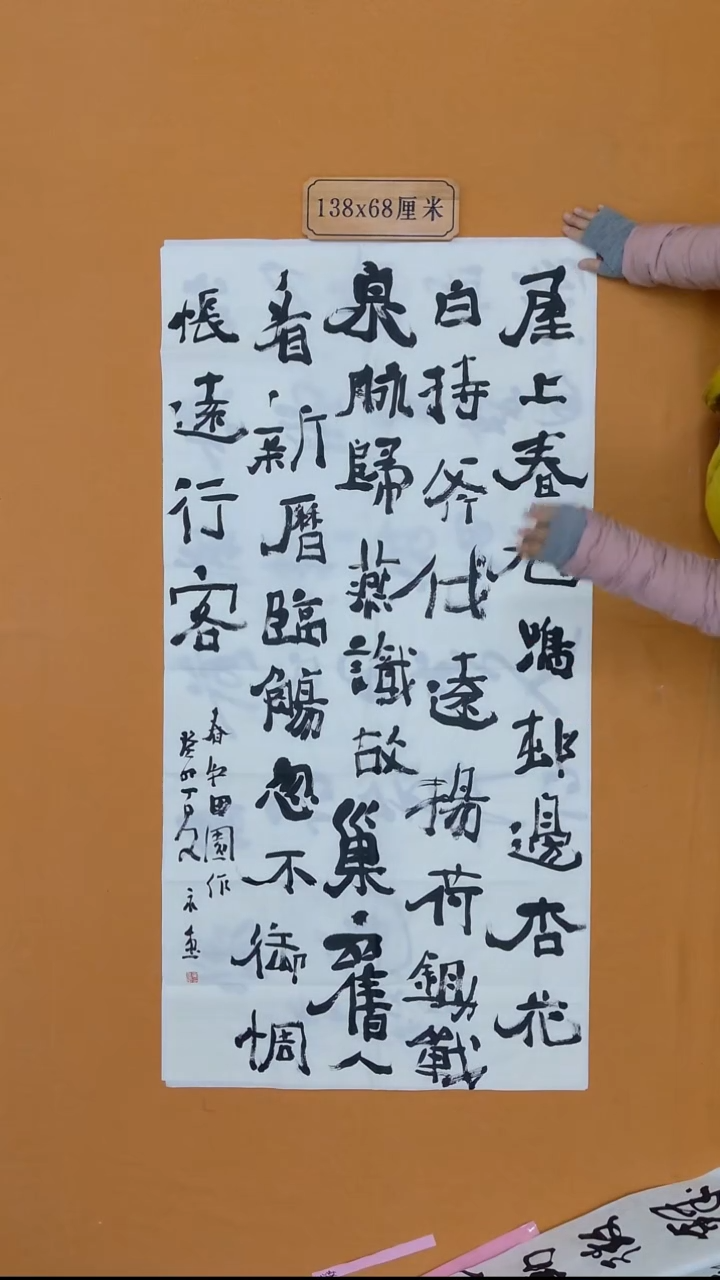 138x68厘米
屋上春鳴邨邊杏花
白持斧伐遠揚荷鋤
泉脉歸燕識故巢舊人
看新曆臨觴忽不御惆
悵遠行客
春中田園作
癸卯